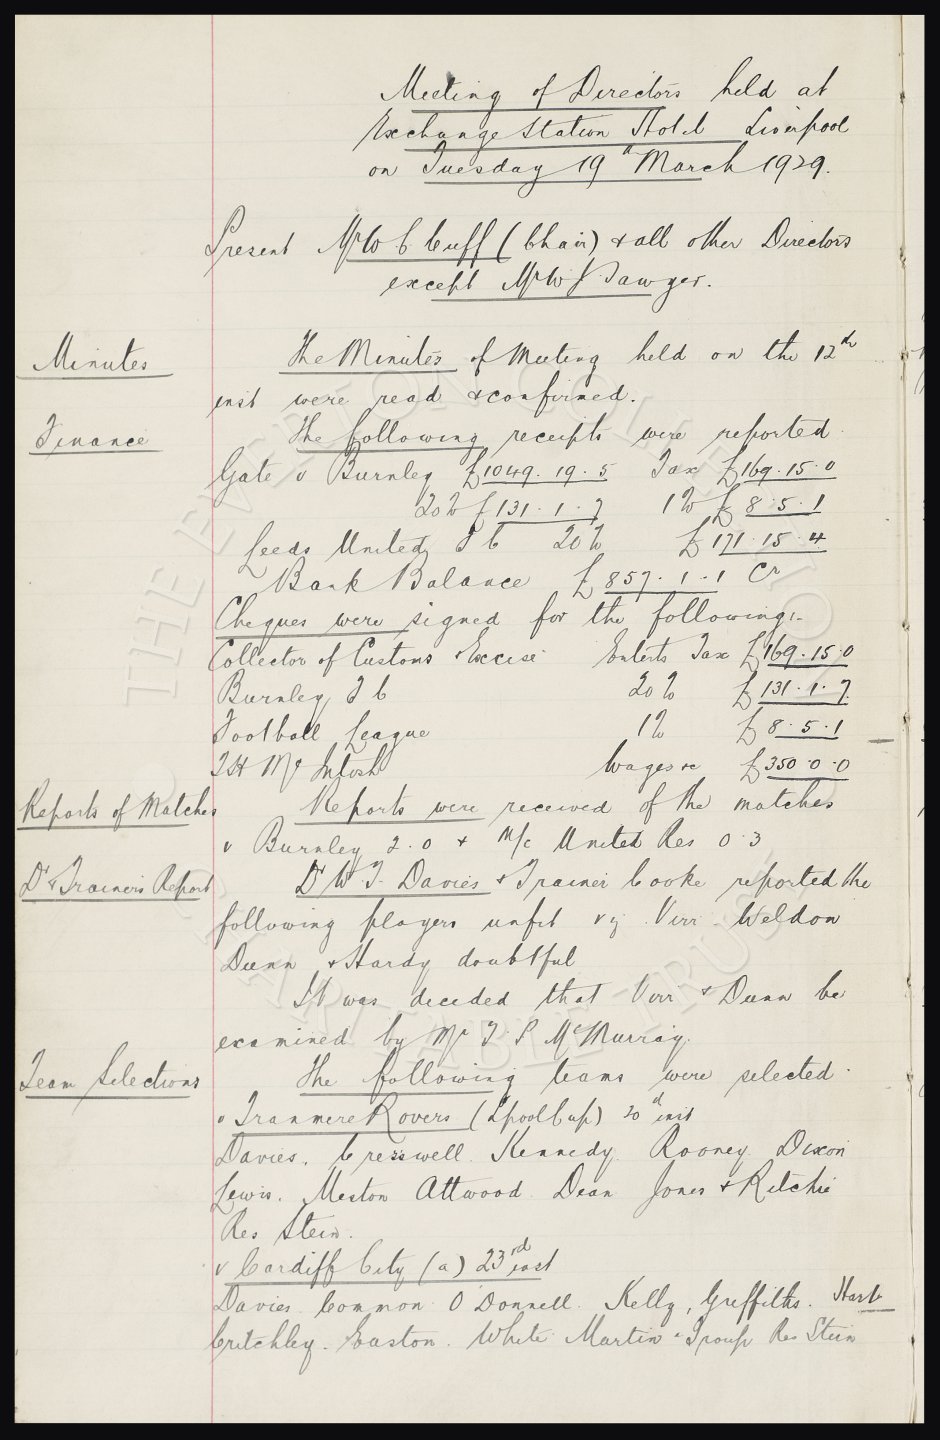 Meeting of Directors held at
Exchange Station Hotel Liverpool
on Tuesday 19th March 1929.
Present Mr W C Cuff (Chair) & all other Directors
except Mr W J Sawyer.
Minutes
The Minutes of Meeting held on the 12th
inst were read & confirmed.
Finance
The following receipts were reported
Gate v Burnley £1049. 19. 5 Tax £169. 15. 0
20% £131. 1. 7 1% £8. 5. 1
Leeds United F C 20% £171. 15. 4
Bank Balance £857. 1. 1 Cr
Cheques were signed for the following:-
Collector of Customs & Excise Enterts Tax £169. 15. 0
Burnley F C 20% £131. 1. 7
Football League 1% £8. 5. 1
T H McIntosh Wages &c £350. 0. 0
Reports of Matches
Reports were received of the matches
v Burnley 2. 0 & M/c United Res 0. 3
Dr & Trainers Report
Dr W. F. Davies & Trainer Cooke reported the
following players unfit viz. Virr. Weldon
Dunn & Hardy doubtful
It was decided that Virr & Dunn be
examined by Mr T P McMurray.
Team Selections
The following teams were selected.
v Tranmere Rovers (L'pool Cup) 20th inst
Davies. Cresswell. Kennedy. Rooney. Dixon
Lewis. Meston Attwood. Dean Jones & Ritchie
Res Stein.
v Cardiff City (a) 23rd inst
Davies. Common. O'Donnell. Kelly, Griffiths. Hart
Critchley. Easton. White. Martin & Troup Res Stein
THE EVERTON COLLECTION
CHARITABLE TRUST